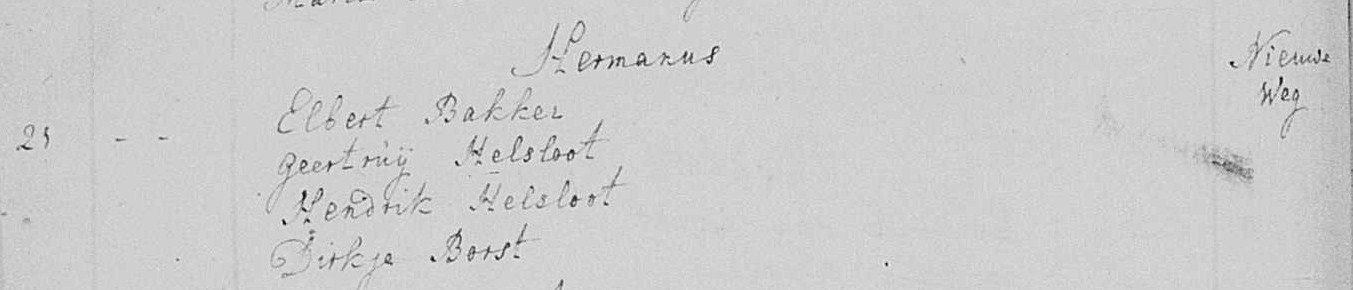 Hermanus
Nieuwe
Weg
Elbert Bakker
25 - -
geertruÿ Helsloot
Hendrik Helsloot
Dirkje Borst